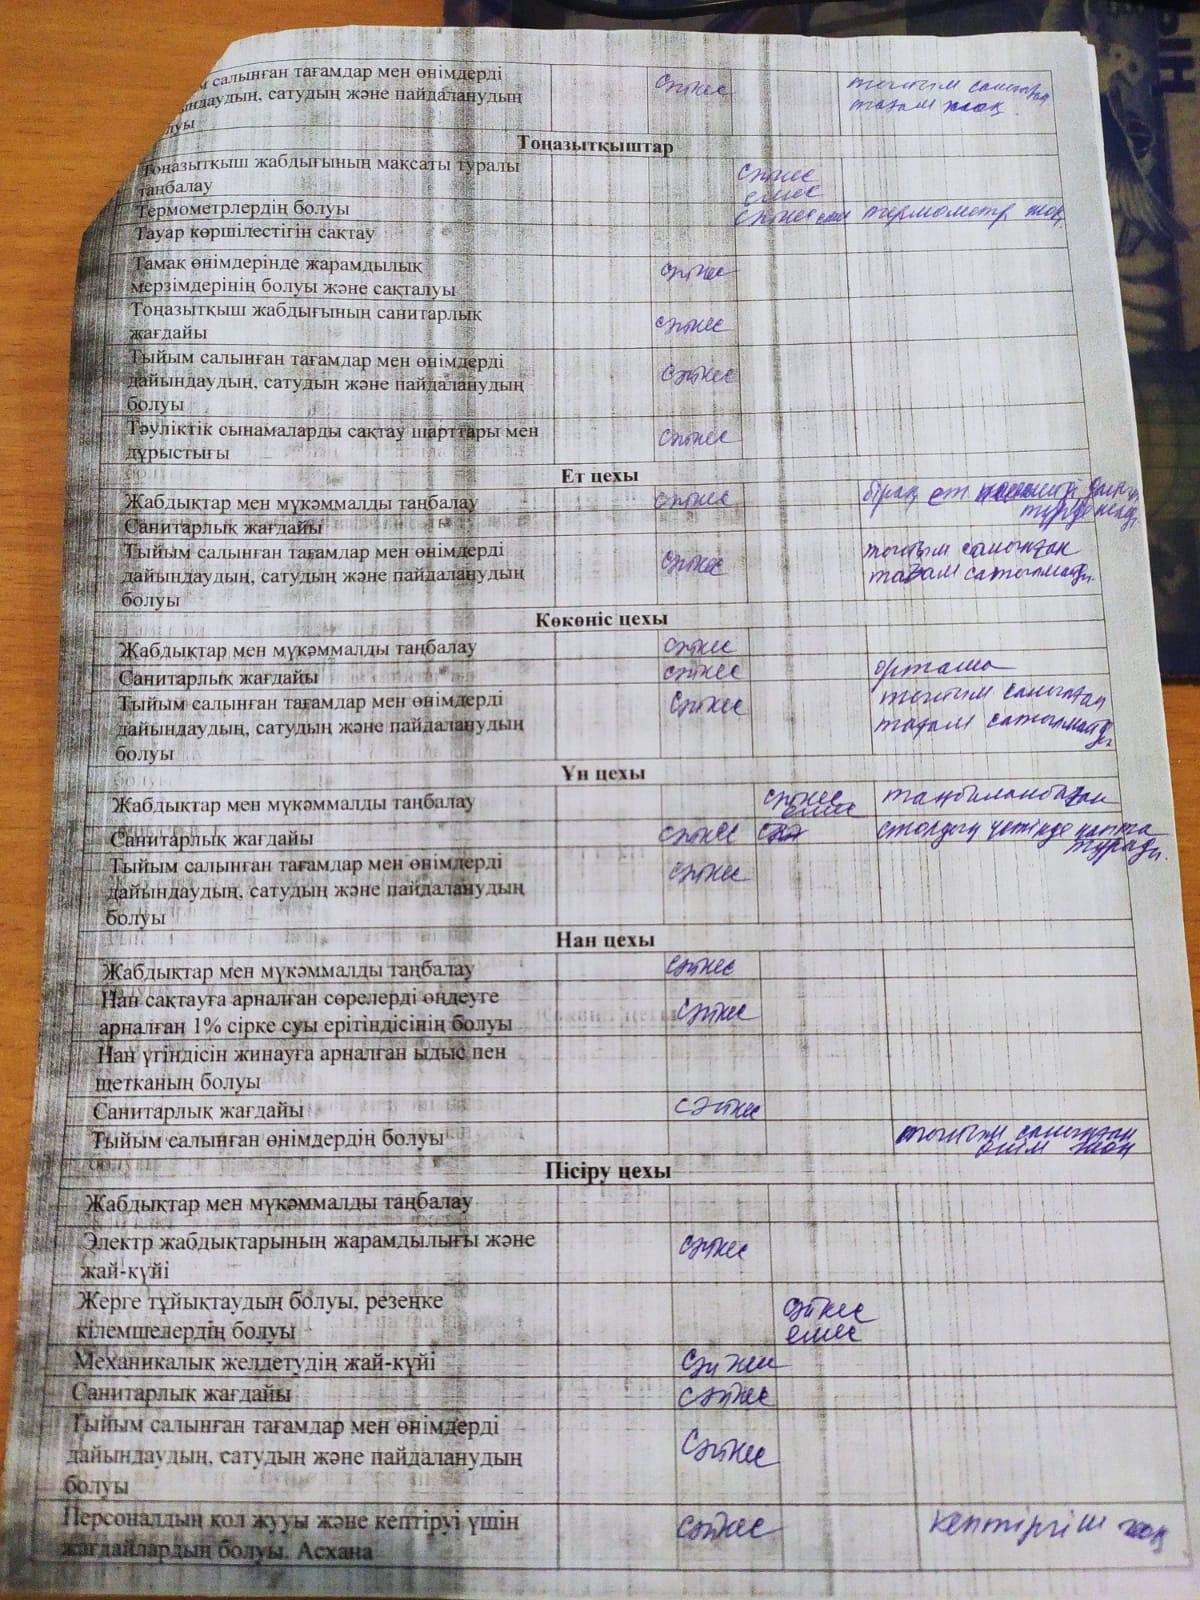 м салынған тағамдар мен өнімдерді сәйкес тыйым салынған
ындаудың, сатудың және пайдаланудың тағам жоқ.
болуы
Тоңазытқыштар
Тоңазытқыш жабдығының мақсаты туралы сәйкес
таңбалау емес
Термометрлердің болуы сәйкес емес термометр жоқ
Тауар көршілестігін сақтау
Тамақ өнімдерінде жарамдылық сәйкес
мерзімдерінің болуы және сақталуы
Тоңазытқыш жабдығының санитарлық сәйкес
жағдайы
Тыйым салынған тағамдар мен өнімдерді
дайындаудың, сатудың және пайдаланудың сәйкес
болуы
Тәуліктік сынамаларды сақтау шарттары мен сәйкес
дұрыстығы
Ет цехы
Жабдықтар мен мүкәммалды таңбалау сәйкес бірақ ет
Санитарлық жағдайы
Тыйым салынған тағамдар мен өнімдерді тыйым салынған
дайындаудың, сатудың және пайдаланудың сәйкес тағам сатылмайды.
болуы
Көкөніс цехы
Жабдықтар мен мүкәммалды таңбалау сәйкес
Санитарлық жағдайы сәйкес орташа
Тыйым салынған тағамдар мен өнімдерді сәйкес тыйым салынған
дайындаудың, сатудың және пайдаланудың тағам сатылмайды
болуы
Ұн цехы
Жабдықтар мен мүкәммалды таңбалау сәйкес емес таңбаланбаған
Санитарлық жағдайы сәйкес столдың үстінде қапта
тұрады.
Тыйым салынған тағамдар мен өнімдерді сәйкес
дайындаудың, сатудың және пайдаланудың
болуы
Нан цехы
Жабдықтар мен мүкәммалды таңбалау сәйкес
Нан сақтауға арналған сөрелерді өңдеуге сәйкес
арналған 1% сірке суы ерітіндісінің болуы
Нан үгіндісін жинауға арналған ыдыс пен
щетканың болуы
Санитарлық жағдайы сәйкес
Тыйым салынған өнімдердің болуы тыйым салынған
өнім жоқ
Пісіру цехы
Жабдықтар мен мүкәммалды таңбалау
Электр жабдықтарының жарамдылығы және сәйкес
жай-күйі
Жерге тұйықтаудың болуы, резеңке сәйкес
кілемшелердің болуы емес
Механикалық желдетудің жай-күйі сәйкес
Санитарлық жағдайы сәйкес
Тыйым салынған тағамдар мен өнімдерді
дайындаудың, сатудың және пайдаланудың сәйкес
болуы
Персоналдың қол жууы және кептіруі үшін сәйкес кептіргіш жоқ
жағдайлардың болуы. Асхана